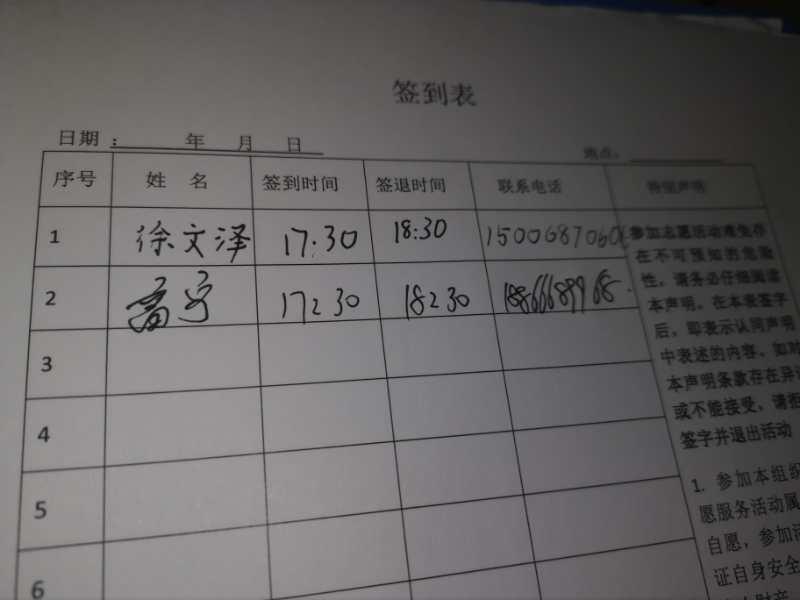 签到表
日期： 年 月 日
地点：
序号 姓 名 签到时间 签退时间 联系电话 特别声明
1 徐文泽 17:30 18:30
2 17:30 18:30
3
4
5
6
参加志愿活动难免存
在不可预知的危险
性，请务必仔细阅读
本声明。在本表签字
后，即表示认同声明
中表述的内容。如对
本声明条款存在异议
或不能接受，请拒
签字并退出活动
1. 参加本组织
愿服务活动属
自愿，参加活
证自身安全